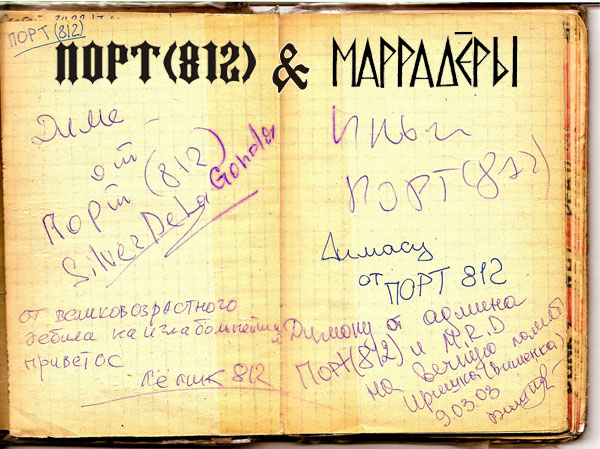 ПОРТ (812)
ПОРТ(812) & МАРРАДЁРЫ
Диме –
от
Порт (812)
SilverDeLaGonda
от великовозрастного
дебила наиглабольнейший
приветос
Лёлик 812
ПОРТ(812)
Димасу
от ПОРТ 812
Димону от админа
ПОРТ(812) и M.R.D
на вечную память
Иришка (Вишенка)
9.03.03